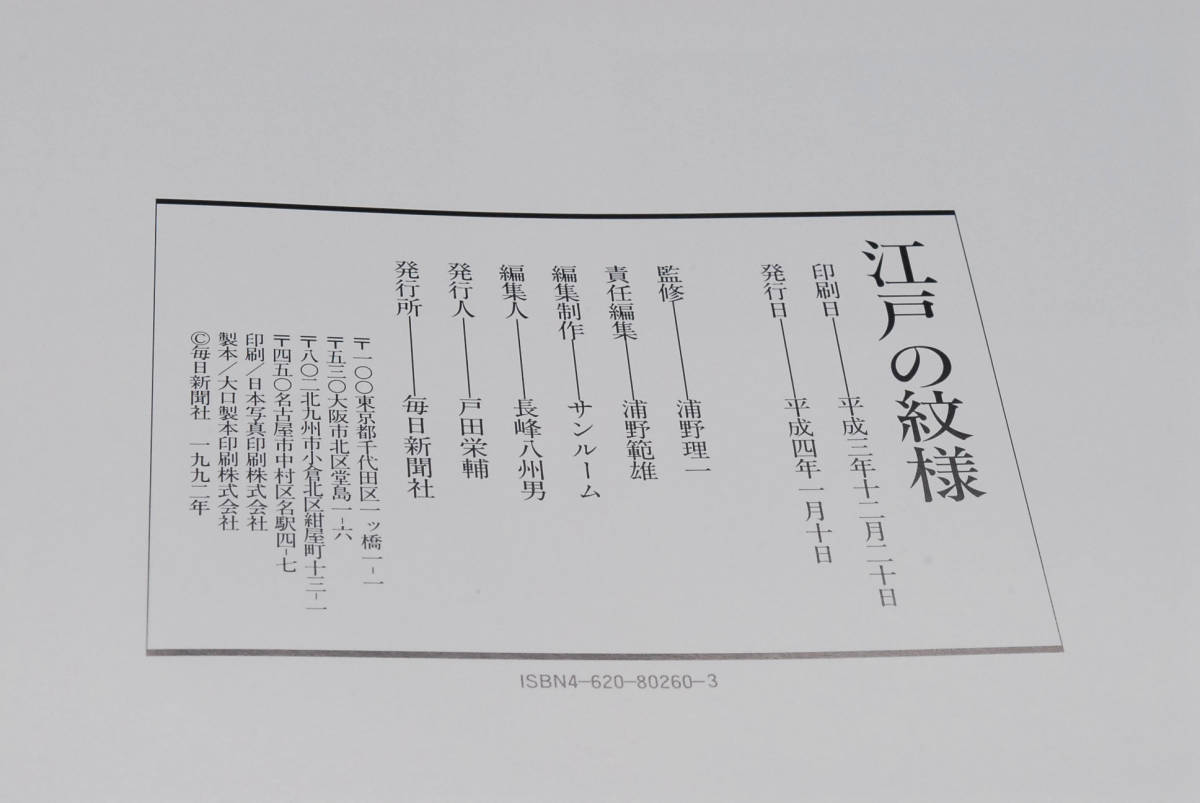 江戸の紋様
印刷日――平成三年十二月二十日
発行日――平成四年一月十日
監修――浦野理一
責任編集――浦野範雄
編集制作――サンルーム
編集人――長峰八州男
発行人――戸田栄輔
発行所――毎日新聞社
〒一〇〇東京都千代田区一ッ橋一-一
〒五三〇大阪市北区堂島一-六
〒八〇二北九州市小倉北区紺屋町十三-一
〒四五〇名古屋市中村区名駅四-七
印刷／日本写真印刷株式会社
製本／大口製本印刷株式会社
©毎日新聞社 一九九二年
ISBN4-620-80260-3